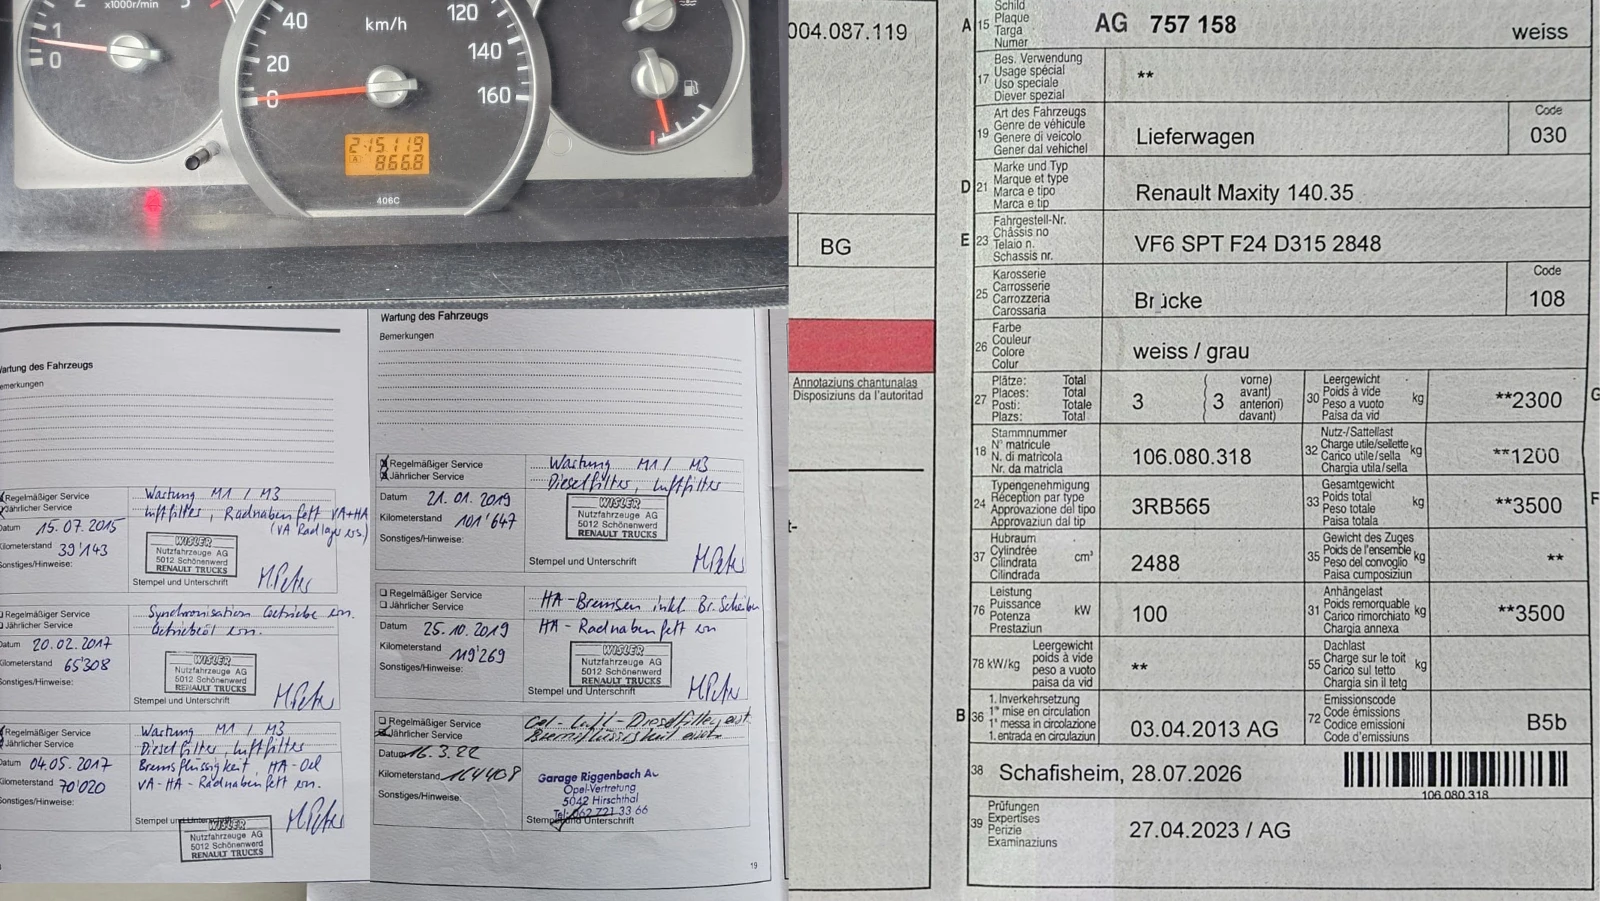 x1000r/min
1
0
40
20
0
km/h
120
140
160
215119
A 866.8
406C
Wartung des Fahrzeugs
Bemerkungen
Regelmäßiger Service
Jährlicher Service
Wartung M1 / M3
Luftfilter, Radnaben fett VA+HA
Datum 15.07.2015
(VA Radlager ers.)
Kilometerstand 39'143
Sonstiges/Hinweise:
WISLER
Nutzfahrzeuge AG
5012 Schönenwerd
RENAULT TRUCKS
Stempel und Unterschrift
M. Peter
Regelmäßiger Service
Jährlicher Service
Synchronisation Getriebe ern.
Getriebeöl ern.
Datum 20.02.2017
Kilometerstand 65'308
Sonstiges/Hinweise:
WISLER
Nutzfahrzeuge AG
5012 Schönenwerd
RENAULT TRUCKS
Stempel und Unterschrift
M. Peter
Regelmäßiger Service
Jährlicher Service
Wartung M1 / M3
Dieselfilter, Luftfilter
Datum 04.05.2017
Bremsflüssigkeit, HA-Oel
Kilometerstand 70'020
VA-HA-Radnaben fett ern.
Sonstiges/Hinweise:
Stempel und Unterschrift
M. Peter
WISLER
Nutzfahrzeuge AG
5012 Schönenwerd
RENAULT TRUCKS
Wartung des Fahrzeugs
Bemerkungen
Regelmäßiger Service
Jährlicher Service
Wartung M1 / M3
Dieselfilter, Luftfilter
Datum 21.01.2019
Kilometerstand 101'647
Sonstiges/Hinweise:
WISLER
Nutzfahrzeuge AG
5012 Schönenwerd
RENAULT TRUCKS
Stempel und Unterschrift
M. Peter
Regelmäßiger Service
Jährlicher Service
HA-Bremsen inkl. Br. Scheiben
Datum 25.10.2019
HA-Radnaben fett ern
Kilometerstand 119'269
Sonstiges/Hinweise:
WISLER
Nutzfahrzeuge AG
5012 Schönenwerd
RENAULT TRUCKS
Stempel und Unterschrift
M. Peter
Regelmäßiger Service
Jährlicher Service
Oel-Luft-Dieselfilter
Bremsflüssigkeit
Datum 16.3.22
Kilometerstand 164408
Sonstiges/Hinweise:
Garage Riggenbach AG
Opel-Vertretung
5042 Hirschthal
Tel. 062 721 33 66
Stempel und Unterschrift
19
004.087.119
BG
Annotaziuns chantunalas
Disposiziuns da l'autoritad
A 15 Schild
Plaque
Targa
Numer
AG 757 158 weiss
17 Bes. Verwendung
Usage spécial
Uso speciale
Diever spezial
**
19 Art des Fahrzeugs
Genre de véhicule
Genere di veicolo
Gener dal vehichel
Lieferwagen
Code
030
D 21 Marke und Typ
Marque et type
Marca e tipo
Marca e tip
Renault Maxity 140.35
E 23 Fahrgestell-Nr.
Châssis no
Telaio n.
Schassis nr.
VF6 SPT F24 D315 2848
25 Karosserie
Carrosserie
Carrozzeria
Carossaria
Brücke
Code
108
26 Farbe
Couleur
Colore
Colur
weiss / grau
27 Plätze: Total
Places: Total
Posti: Totale
Plazs: Total
3 ( 3 vorne)
avant)
anteriori)
davant)
30 Leergewicht
Poids à vide
Peso a vuoto
Paisa da vid
kg
**2300
G
18 Stammnummer
N° matricule
N. di matricola
Nr. da matricla
106.080.318
32 Nutz-/Sattellast
Charge utile/sellette
Carico utile/sella
Chargia utila/sella
kg
**1200
24 Typengenehmigung
Réception par type
Approvazione del tipo
Approvaziun dal tip
3RB565
33 Gesamtgewicht
Poids total
Peso totale
Paisa totala
kg
**3500
F
37 Hubraum
Cylindrée
Cilindrata
Cilindrada
cm³
2488
35 Gewicht des Zuges
Poids de l'ensemble
Peso del convoglio
Paisa cumposiziun
kg
**
76 Leistung
Puissance
Potenza
Prestaziun
kW
100
31 Anhängelast
Poids remorquable
Carico rimorchiato
Chargia annexa
kg
**3500
78 kW/kg Leergewicht
poids à vide
peso a vuoto
paisa da vid
**
55 Dachlast
Charge sur le toit
Carico sul tetto
Chargia sin il tetg
kg
B 36 1. Inverkehrsetzung
1re mise en circulation
1a messa in circolazione
1. entrada en circulaziun
03.04.2013 AG
72 Emissionscode
Code émissions
Codice emissioni
Code d'emissiuns
B5b
38 Schafisheim, 28.07.2026
106.080.318
39 Prüfungen
Expertises
Perizie
Examinaziuns
27.04.2023 / AG